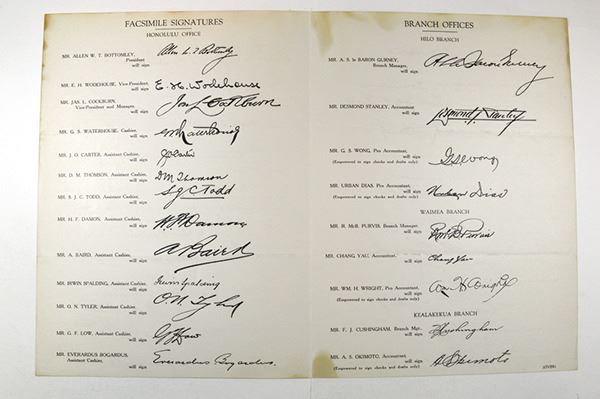 FACSIMILE SIGNATURES
HONOLULU OFFICE
MR. ALLEN W. T. BOTTOMLEY,
President
will sign
Allen W. T. Bottomley
MR. E. H. WODEHOUSE, Vice-President,
will sign
E. H. Wodehouse
MR. JAS. L. COCKBURN,
Vice-President and Manager,
will sign
Jas L Cockburn
MR. G. S. WATERHOUSE, Cashier,
will sign
MR. J. O. CARTER, Assistant Cashier,
will sign
MR. D. M. THOMSON, Assistant Cashier,
will sign
D M Thomson
MR. S. J. C. TODD, Assistant Cashier,
will sign
S J C Todd
MR. H. F. DAMON, Assistant Cashier,
will sign
H. F. Damon
MR. A. BAIRD, Assistant Cashier,
will sign
A Baird
MR. IRWIN SPALDING, Assistant Cashier,
will sign
Irwin Spalding
MR. O. N. TYLER, Assistant Cashier,
will sign
O. N. Tyler
MR. G. F. LOW, Assistant Cashier,
will sign
G F Low
MR. EVERARDUS BOGARDUS,
Assistant Cashier,
will sign
Everardus Bogardus.
BRANCH OFFICES
HILO BRANCH
MR. A. S. le BARON GURNEY,
Branch Manager,
will sign
MR. DESMOND STANLEY, Accountant
will sign
Desmond Stanley
MR. G. S. WONG, Pro Accountant,
will sign
(Empowered to sign checks and drafts only)
G. S. Wong
MR. URBAN DIAS, Pro Accountant,
will sign
(Empowered to sign checks and drafts only)
Urban Dias
WAIMEA BRANCH
MR. R. McB. PURVIS, Branch Manager,
will sign
MR. CHANG YAU, Accountant,
will sign
Chang Yau
MR. WM. H. WRIGHT, Pro Accountant,
will sign
(Empowered to sign checks and drafts only)
Wm H Wright
KEALAKEKUA BRANCH
MR. F. J. CUSHINGHAM, Branch Mgr.,
will sign
MR. A. S. OKIMOTO, Accountant,
will sign
(Empowered to sign checks and drafts only)
A. S. Okimoto